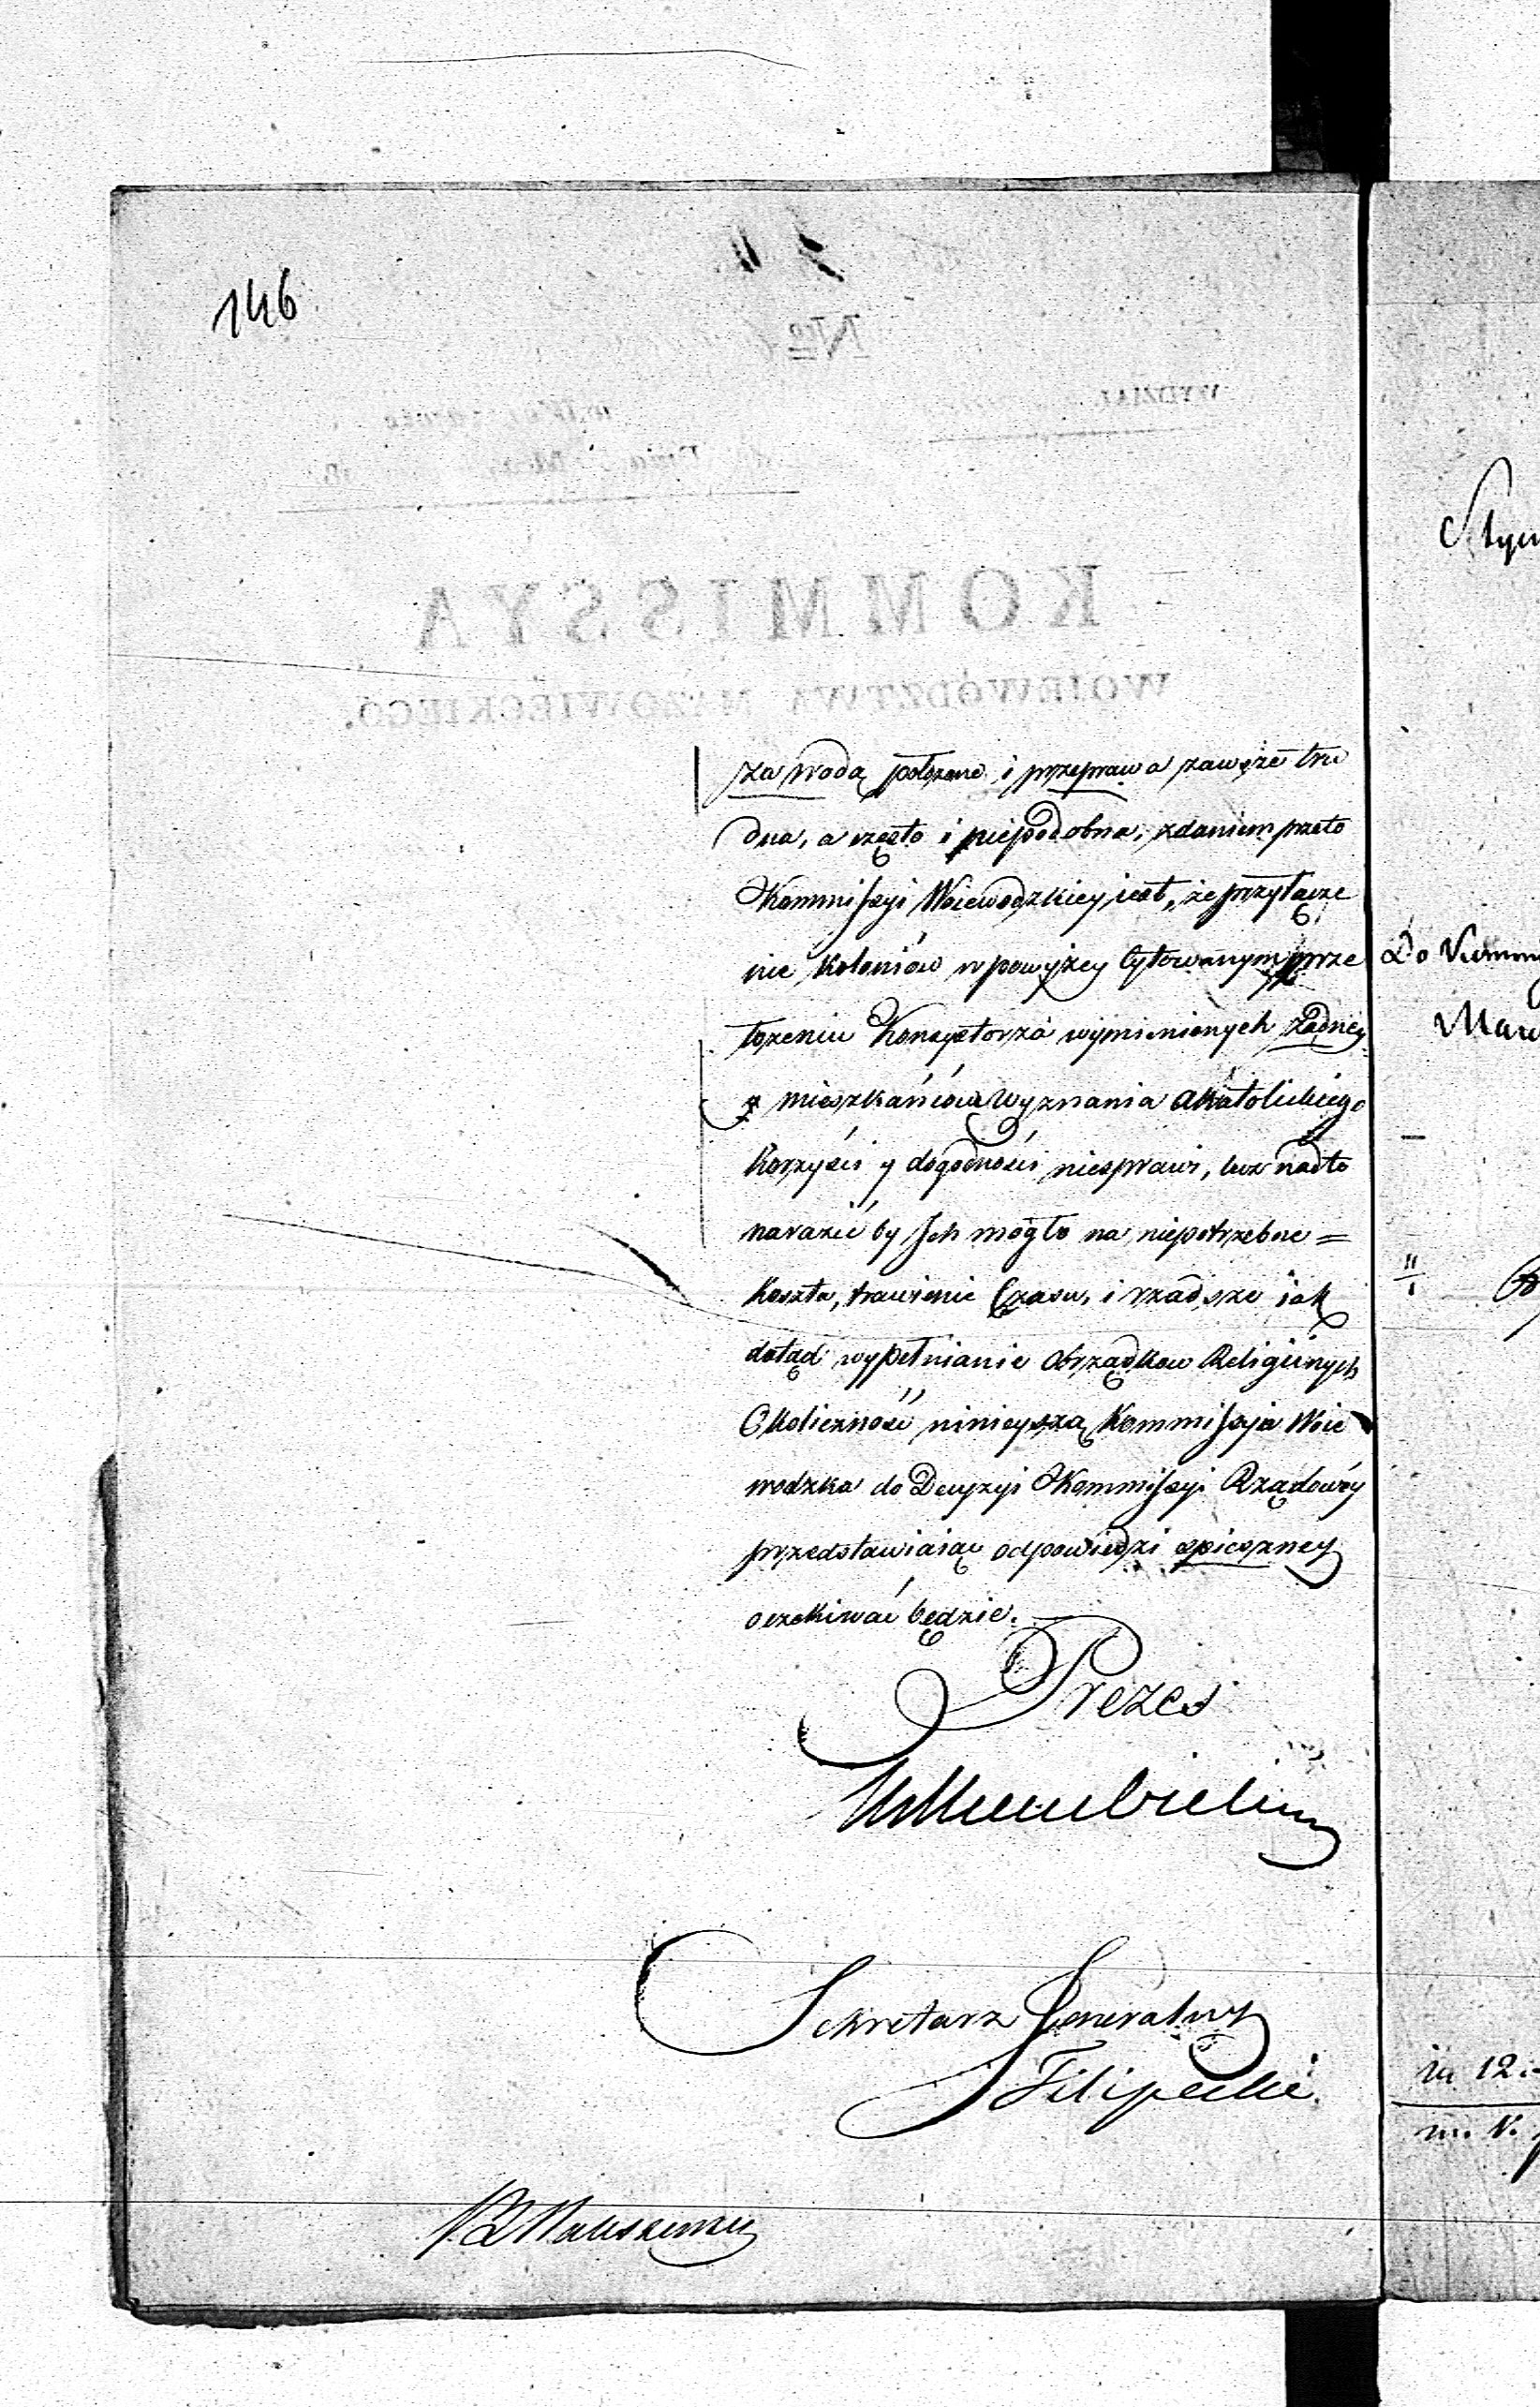 146
za wodą położone i przeprawa zawsze tru
dna, a często i niepodobna, zdaniem przeto
Kommissyi Woiewodzkiey iest, że przyłącze
nie koloniów w powyżey cytowanym prze
łożeniu Konsystorza wymienionych żadney
z mieszkańców wyznania akatolickiego
korzyści y dogodności niesprawi, lecz nadto
narazić by Ich mogło na niepotrzebne =
koszta, trawienie Czasu, i rzadsze iak
dotąd wypełnianie obrządkow Religiinych
Okoliczność ninieyszą Kommissyia Woie
wodzka do Decyzyi Kommissyi Rządowéy
przedstawiaiąc odpowiedzi spieszney
oczekiwać będzie.
Prezes
Sekretarz Generalny
Filipecki
Do
in 12
m. N.